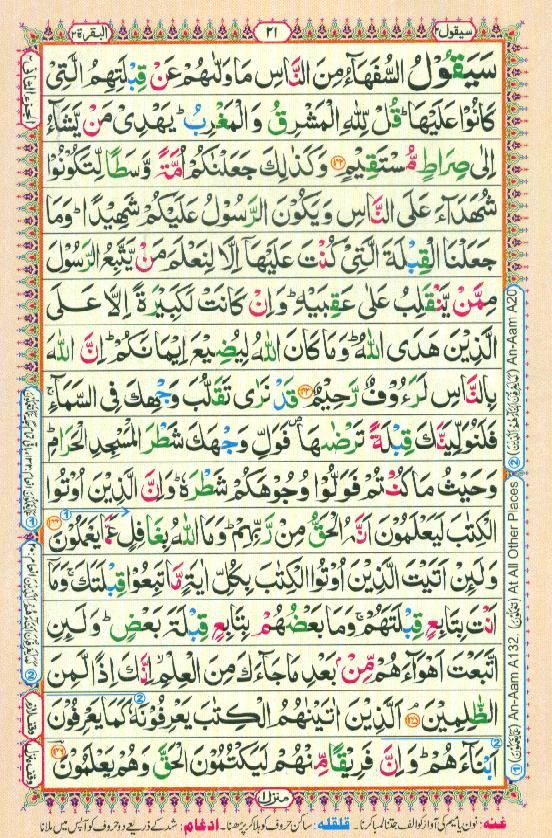 سيقول ٢
٢١
البقرة ٢
سَيَقُوْلُ السُّفَهَآءُ مِنَ النَّاسِ مَا وَلّٰىهُمْ عَنْ قِبْلَتِهِمُ الَّتِىْ
كَانُوْا عَلَيْهَا ؕ قُلْ لِّلّٰهِ الْمَشْرِقُ وَ الْمَغْرِبُ ؕ يَهْدِىْ مَنْ يَّشَآءُ
اِلٰى صِرَاطٍ مُّسْتَقِيْمٍ ﴿۱۴۲﴾ وَكَذٰلِكَ جَعَلْنٰكُمْ اُمَّةً وَّسَطًا لِّتَكُوْنُوْا
شُهَدَآءَ عَلَى النَّاسِ وَيَكُوْنَ الرَّسُوْلُ عَلَيْكُمْ شَهِيْدًا ؕ وَمَا
جَعَلْنَا الْقِبْلَةَ الَّتِىْ كُنْتَ عَلَيْهَآ اِلَّا لِنَعْلَمَ مَنْ يَّتَّبِعُ الرَّسُوْلَ
مِمَّنْ يَّنْقَلِبُ عَلٰى عَقِبَيْهِ ؕ وَاِنْ كَانَتْ لَكَبِيْرَةً اِلَّا عَلَى
الَّذِيْنَ هَدَى اللّٰهُ ؕ وَمَا كَانَ اللّٰهُ لِيُضِيْعَ اِيْمَانَكُمْ ؕ اِنَّ اللّٰهَ
بِالنَّاسِ لَرَءُوْفٌ رَّحِيْمٌ ﴿۱۴۳﴾ قَدْ نَرٰى تَقَلُّبَ وَجْهِكَ فِى السَّمَآءِ ۚ
فَلَنُوَلِّيَنَّكَ قِبْلَةً تَرْضٰىهَا ۪ فَوَلِّ وَجْهَكَ شَطْرَ الْمَسْجِدِ الْحَرَامِ ؕ
وَحَيْثُ مَا كُنْتُمْ فَوَلُّوْا وُجُوْهَكُمْ شَطْرَهٗ ؕ وَاِنَّ الَّذِيْنَ اُوْتُوا
الْكِتٰبَ لَيَعْلَمُوْنَ اَنَّهُ الْحَقُّ مِنْ رَّبِّهِمْ ؕ وَمَا اللّٰهُ بِغَافِلٍ عَمَّا يَعْمَلُوْنَ ﴿۱۴۴﴾
وَلَئِنْ اَتَيْتَ الَّذِيْنَ اُوْتُوا الْكِتٰبَ بِكُلِّ اٰيَةٍ مَّا تَبِعُوْا قِبْلَتَكَ ۚ وَمَآ
اَنْتَ بِتَابِعٍ قِبْلَتَهُمْ ۚ وَمَا بَعْضُهُمْ بِتَابِعٍ قِبْلَةَ بَعْضٍ ؕ وَلَئِنِ
اتَّبَعْتَ اَهْوَآءَهُمْ مِّنْۢ بَعْدِ مَا جَآءَكَ مِنَ الْعِلْمِ ۙ اِنَّكَ اِذًا لَّمِنَ
الظّٰلِمِيْنَ ﴿۱۴۵﴾ اَلَّذِيْنَ اٰتَيْنٰهُمُ الْكِتٰبَ يَعْرِفُوْنَهٗ كَمَا يَعْرِفُوْنَ
اَبْنَآءَهُمْ ؕ وَاِنَّ فَرِيْقًا مِّنْهُمْ لَيَكْتُمُوْنَ الْحَقَّ وَهُمْ يَعْلَمُوْنَ ﴿۱۴۶﴾
منزل ۱
② An-Aam A20
① An-Aam A132
At All Other Places
غنه: نون یا میم کی آواز کو الف جتنا لمبا کرنا۔ قلقله: ساکن حروف کو ہلا کر پڑھنا۔ ادغام: شد کے ذریعے دو حروف کو آپس میں ملانا